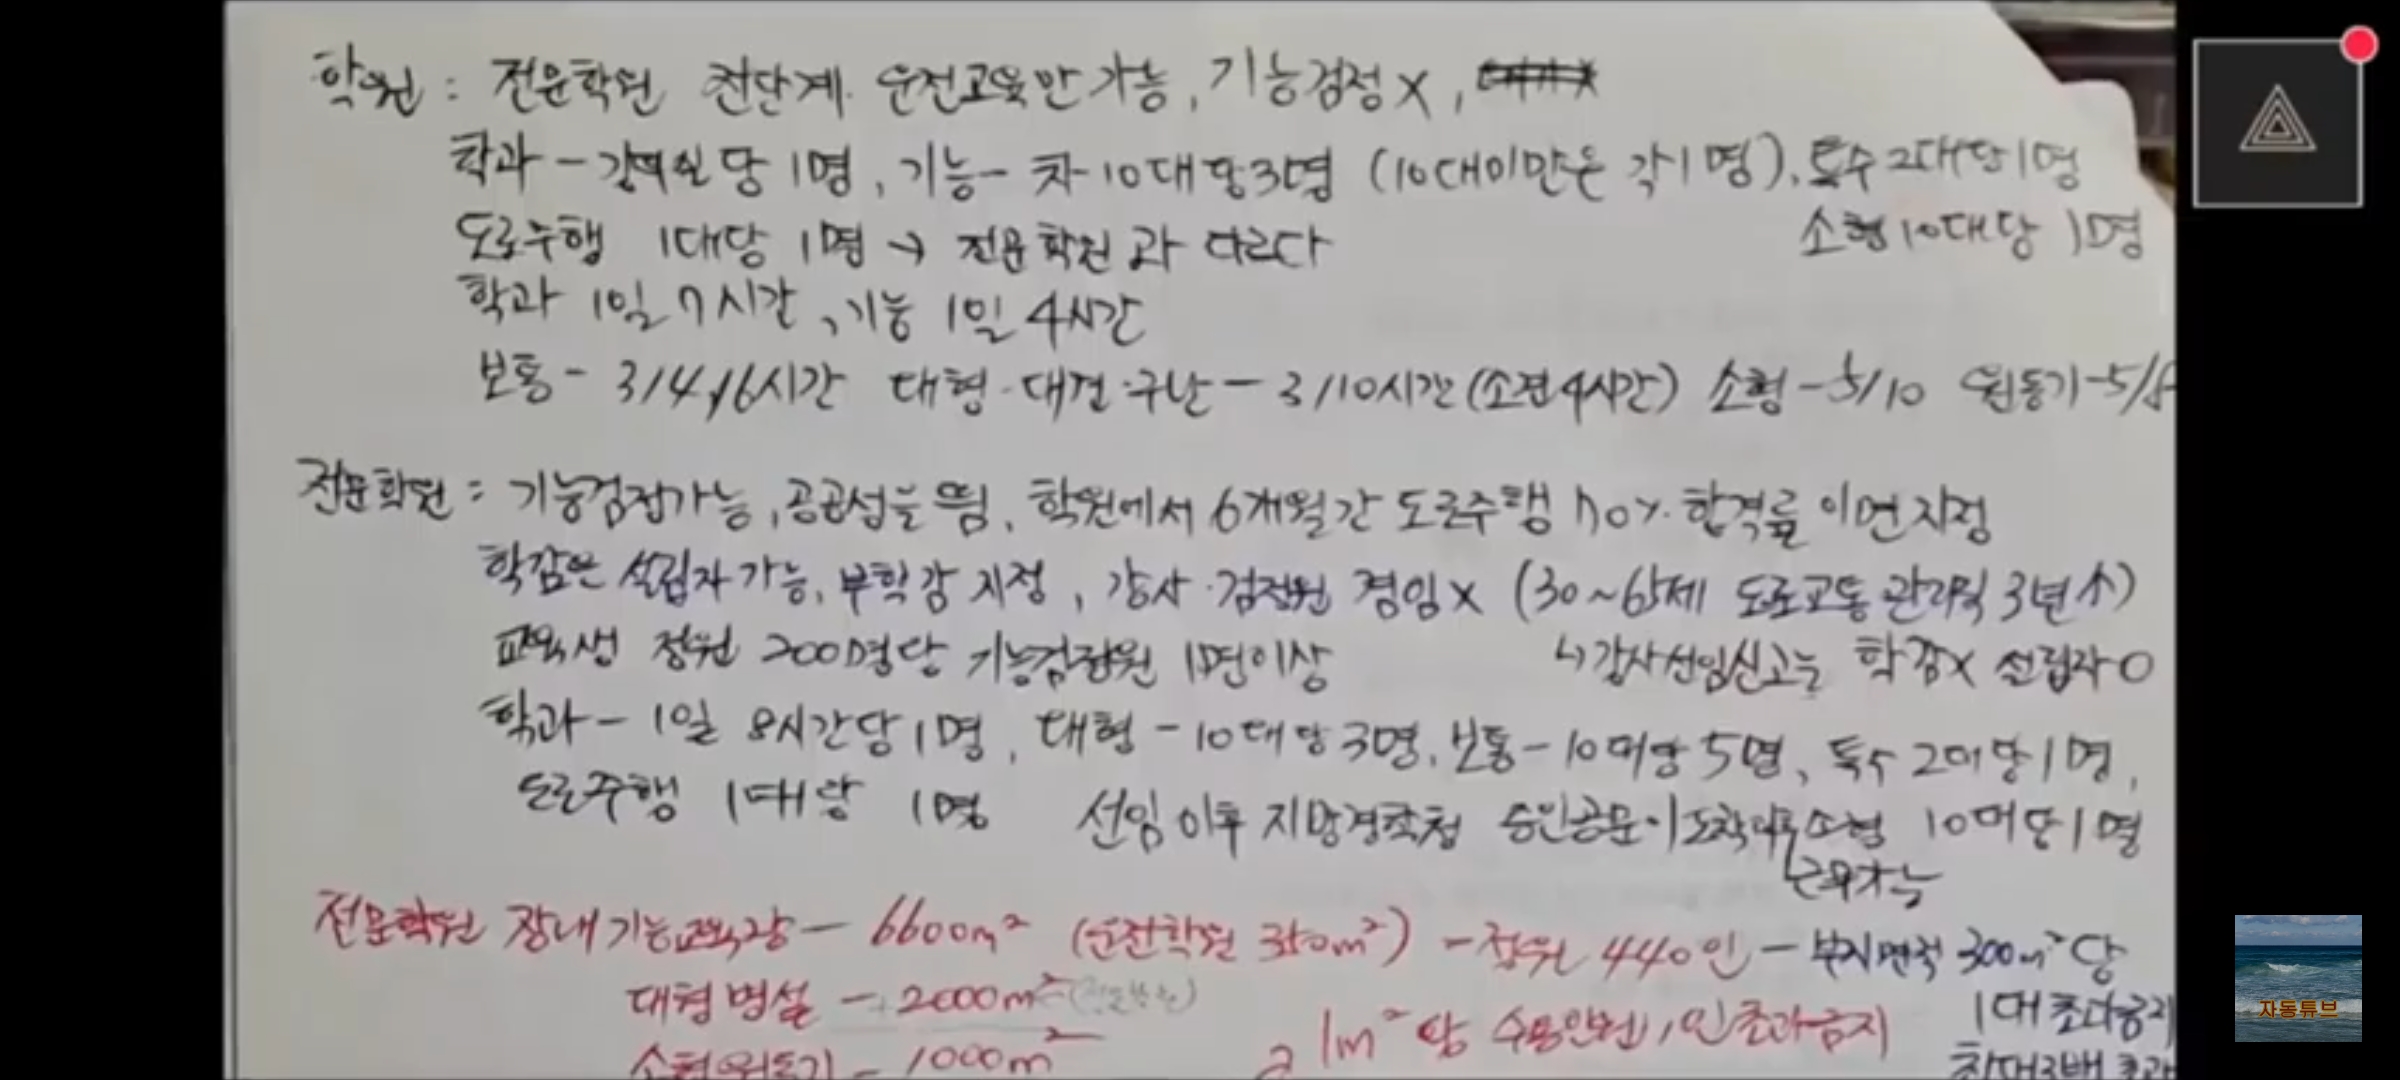 학원 : 전문학원 전단계 운전교육만 가능, 기능검정 X,
학과 - 강의실 당 1명, 기능 - 차 10대당 3명 (10대미만은 각 1명), 특수 2대당 1명
소형 10대당 1명
도로주행 1대당 1명 → 전문학원과 다르다
학과 1일 7시간, 기능 1일 4시간
보통 - 3/4/6시간 대형·대견·구난 - 3/10시간 (소견 4시간) 소형 - 5/10 원동기 - 5/8
전문학원 : 기능검정가능, 공공성을 띔, 학원에서 6개월간 도로주행 70% 합격률 이면 지정
학감은 설립자 가능, 부학감 지정, 강사·검정원 겸임 X (30~65세 도로교통 관리직 3년↑)
교육생 정원 200명당 기능검정원 1명이상
↳ 강사선임신고는 학감X 설립자O
학과 - 1일 8시간당 1명, 대형 - 10대당 3명, 보통 - 10대당 5명, 특수 2대당 1명,
도로주행 1대당 1명 선임 이후 지방경찰청 승인공문이 도착 소형 10대당 1명
근무가능
전문학원 장내기능교육장 - 6600m² (운전학원 350m²) - 정원 440인 - 부지면적 300m²당
1대 초과금지
대형 병설 - +2000m² (전문학원)
1m²당 수용인원 1인 초과금지
소형·원동기 - 1000m²
최대 3배 초과
자동튜브